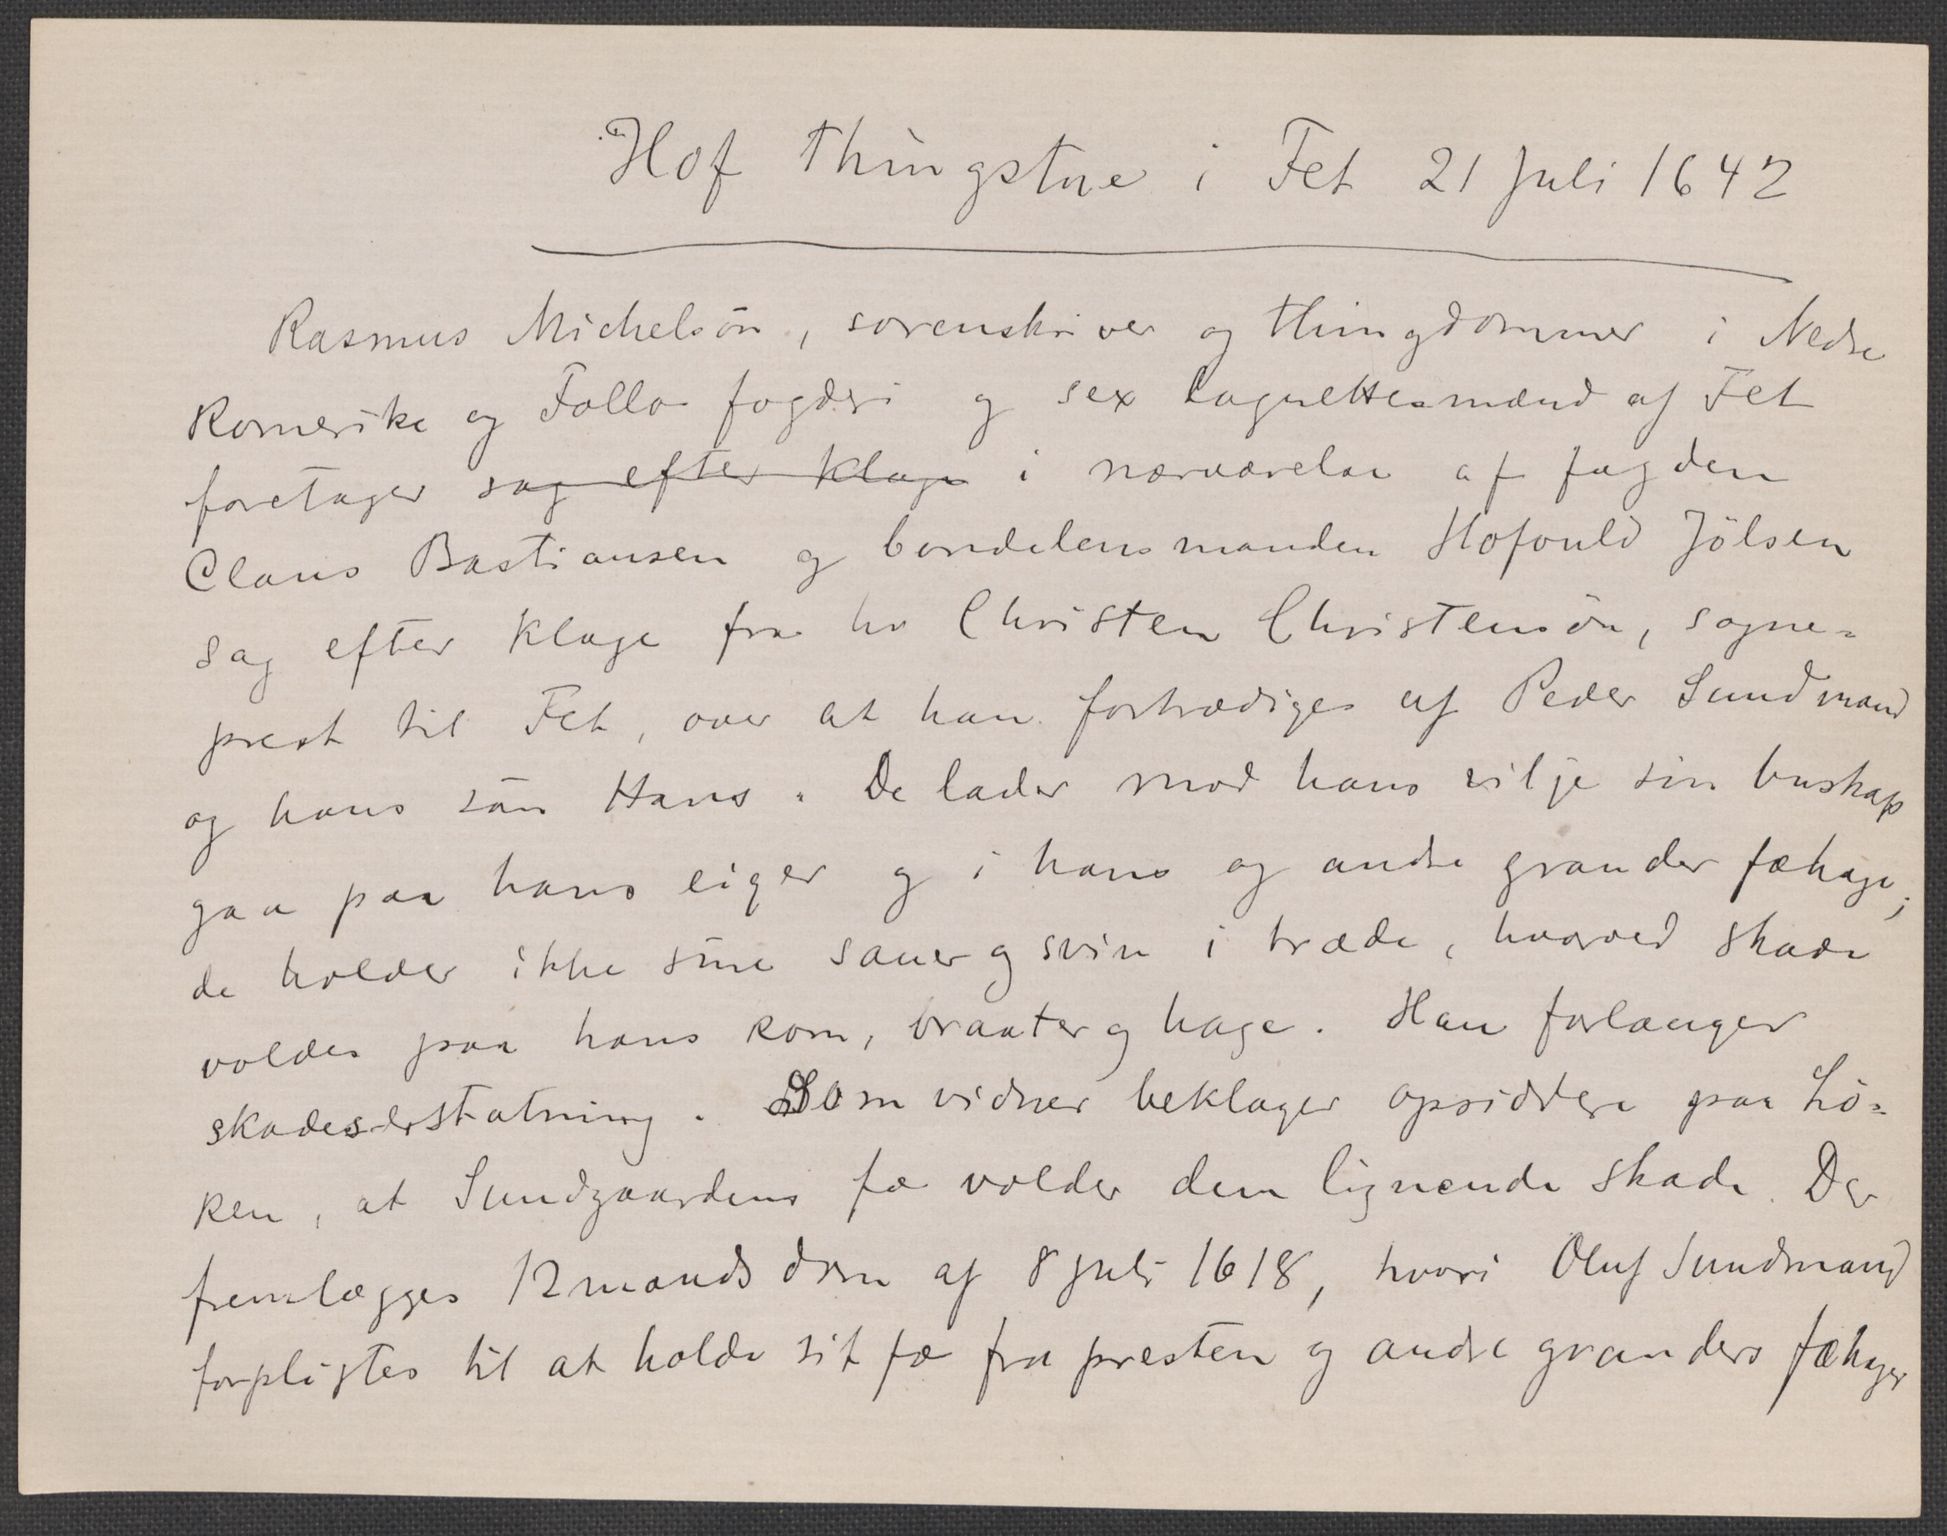 Hof Thingstue i Fet 21 Juli 1642
Rasmus Michelsön, sorenskriver og thingdommer i Nedre
Romerike og Follo fogderi og sex lagrettesmænd af Fet
foretager sag efter klage i nærværelse af fogden
Claus Bastiansen og bondelensmanden Hofould Jölsen
sag efter klage fra hr Christen Christensön, sogne=
prest til Fet, over at han fortrædiges af Peder Sundmand
og hans sön Hans. De lader mod hans vilje sin buskap
gaa paa hans eiger og i hans og andre grander fæhage;
de holder ikke sine sauer og svin i træde, hvorved skade
voldes paa hans korn, braater og hage. Han forlanger
skadeserstatning. Som vidner beklager opsiddere paa Lö=
ken, at Sundgaardens fæ volder dem lignende skade. Der
fremlægges 12 mands dom af 8 juli 1618, hvori Oluf Sundmand
forpligtes til at holde sit fæ fra presten og andre granders fæhager